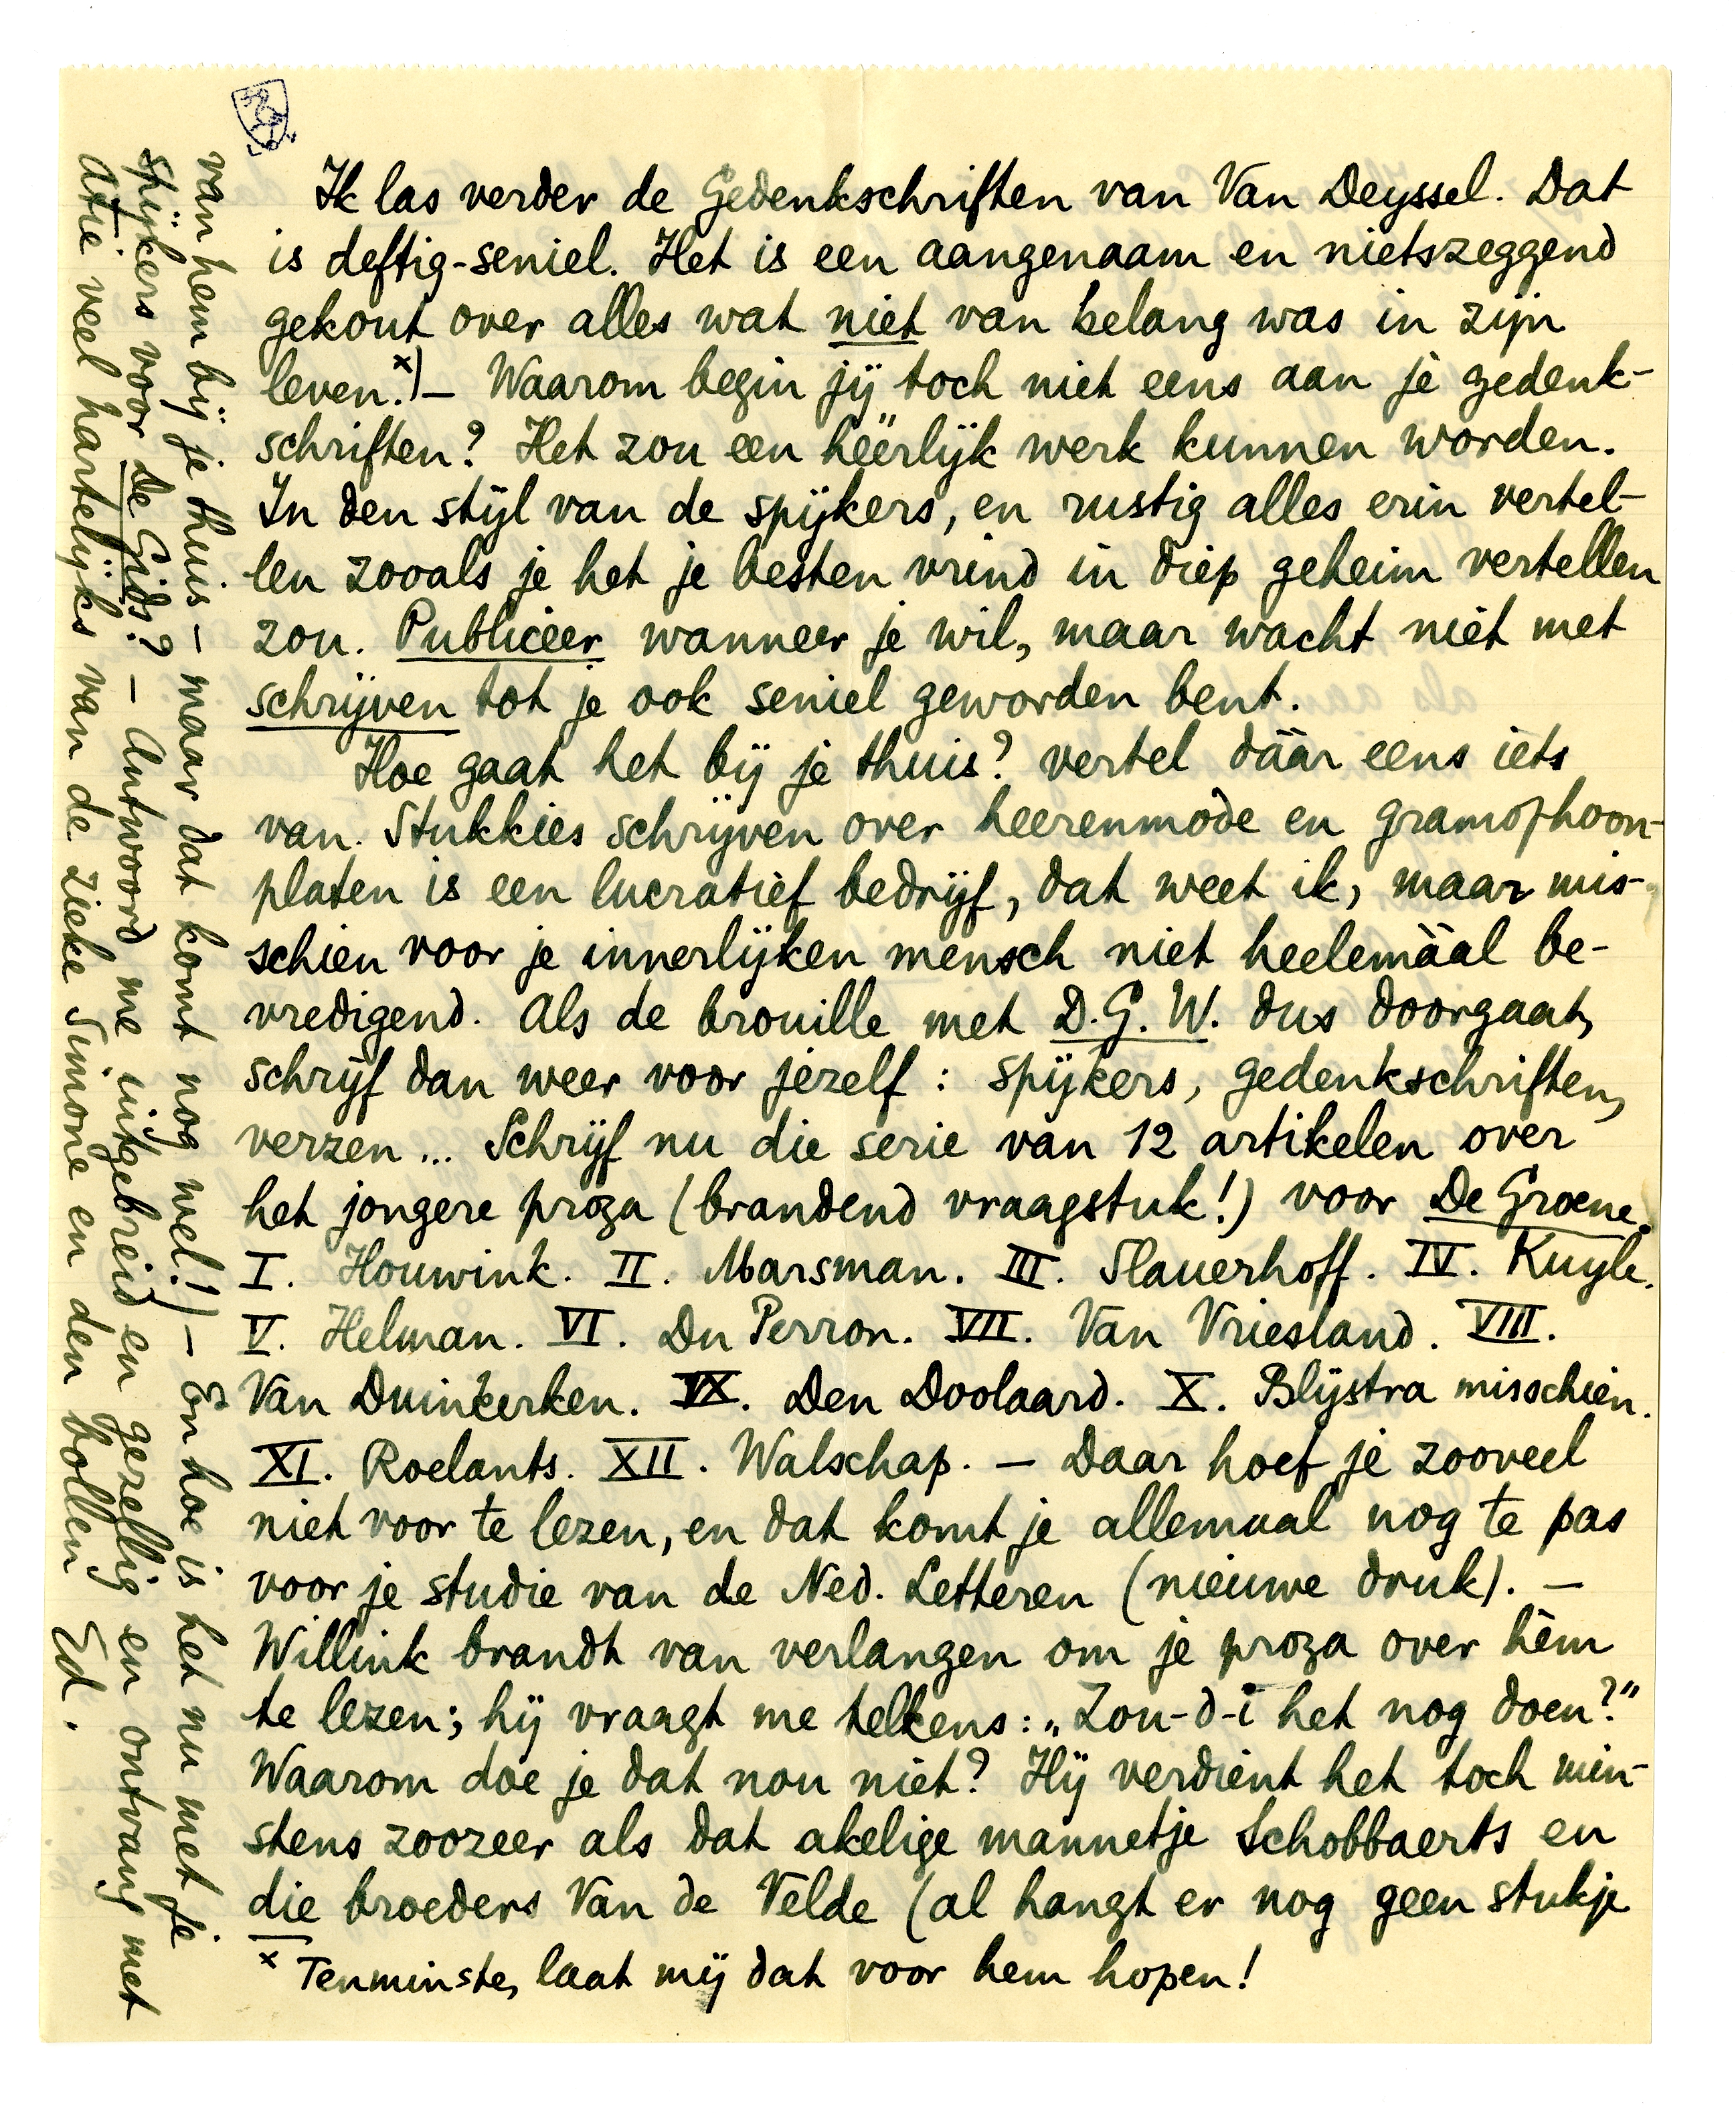 Ik las verder de Gedenkschriften van Van Deyssel. Dat
is deftig-seniel. Het is een aangenaam en nietszeggend
gekout over alles wat niet van belang was in zijn
leven.x) — Waarom begin jij toch niet eens aan je gedenk-
schriften? Het zou een héérlijk werk kunnen worden.
In den stijl van de spijkers, en rustig alles erin vertel-
len zooals je het je besten vrind in diep geheim vertellen
zou. Publiceer wanneer je wil, maar wacht niet met
schrijven tot je ook seniel geworden bent.
Hoe gaat het bij je thuis? vertel dáár eens iets
van. Stukkies schrijven over heerenmode en gramofhoon-
platen is een lucratief bedrijf, dat weet ik, maar mis-
schien voor je innerlijken mensch niet heelemáál be-
vredigend. Als de brouille met D.G.W. dus doorgaat,
schrijf dan weer voor jezelf: spijkers, gedenkschriften,
verzen... Schrijf nu die serie van 12 artikelen over
het jongere proza (brandend vraagstuk!) voor De Groene.
I. Houwink. II. Marsman. III. Slauerhoff. IV. Kuyle.
V. Helman. VI. Du Perron. VII. Van Vriesland. VIII.
Van Duinkerken. IX. Den Doolaard. X. Blijstra misschien.
XI. Roelants. XII. Walschap. — Daar hoef je zooveel
niet voor te lezen, en dat komt je allemaal nog te pas
voor je studie van de Ned. Letteren (nieuwe druk). —
Willink brandt van verlangen om je proza over hèm
te lezen; hij vraagt me telkens: „Zou-d-i het nog doen?"
Waarom doe je dat nou niet? Hij verdient het toch min-
stens zoozeer als dat akelige mannetje Schobbaerts en
die broeders Van de Velde (al hangt er nog geen stukje
x Tenminste, laat mij dat voor hem hopen!
van hem bij je thuis — maar dat komt nog wel!) — En hoe is het nu met je
spijkers voor De Gids? — Antwoord me uitgebreid en gezellig en ontvang met
Atie veel hartelijks van de zieke Simone en den bollen Ed.